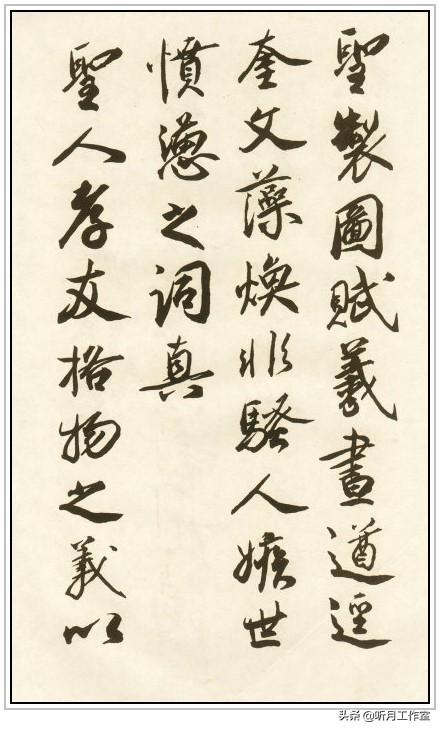 聖製圖賦羲畫遒逕
奎文藻煥非騷人嫉世
憤懣之詞真
聖人孝友格物之義以
头条 @听月工作室